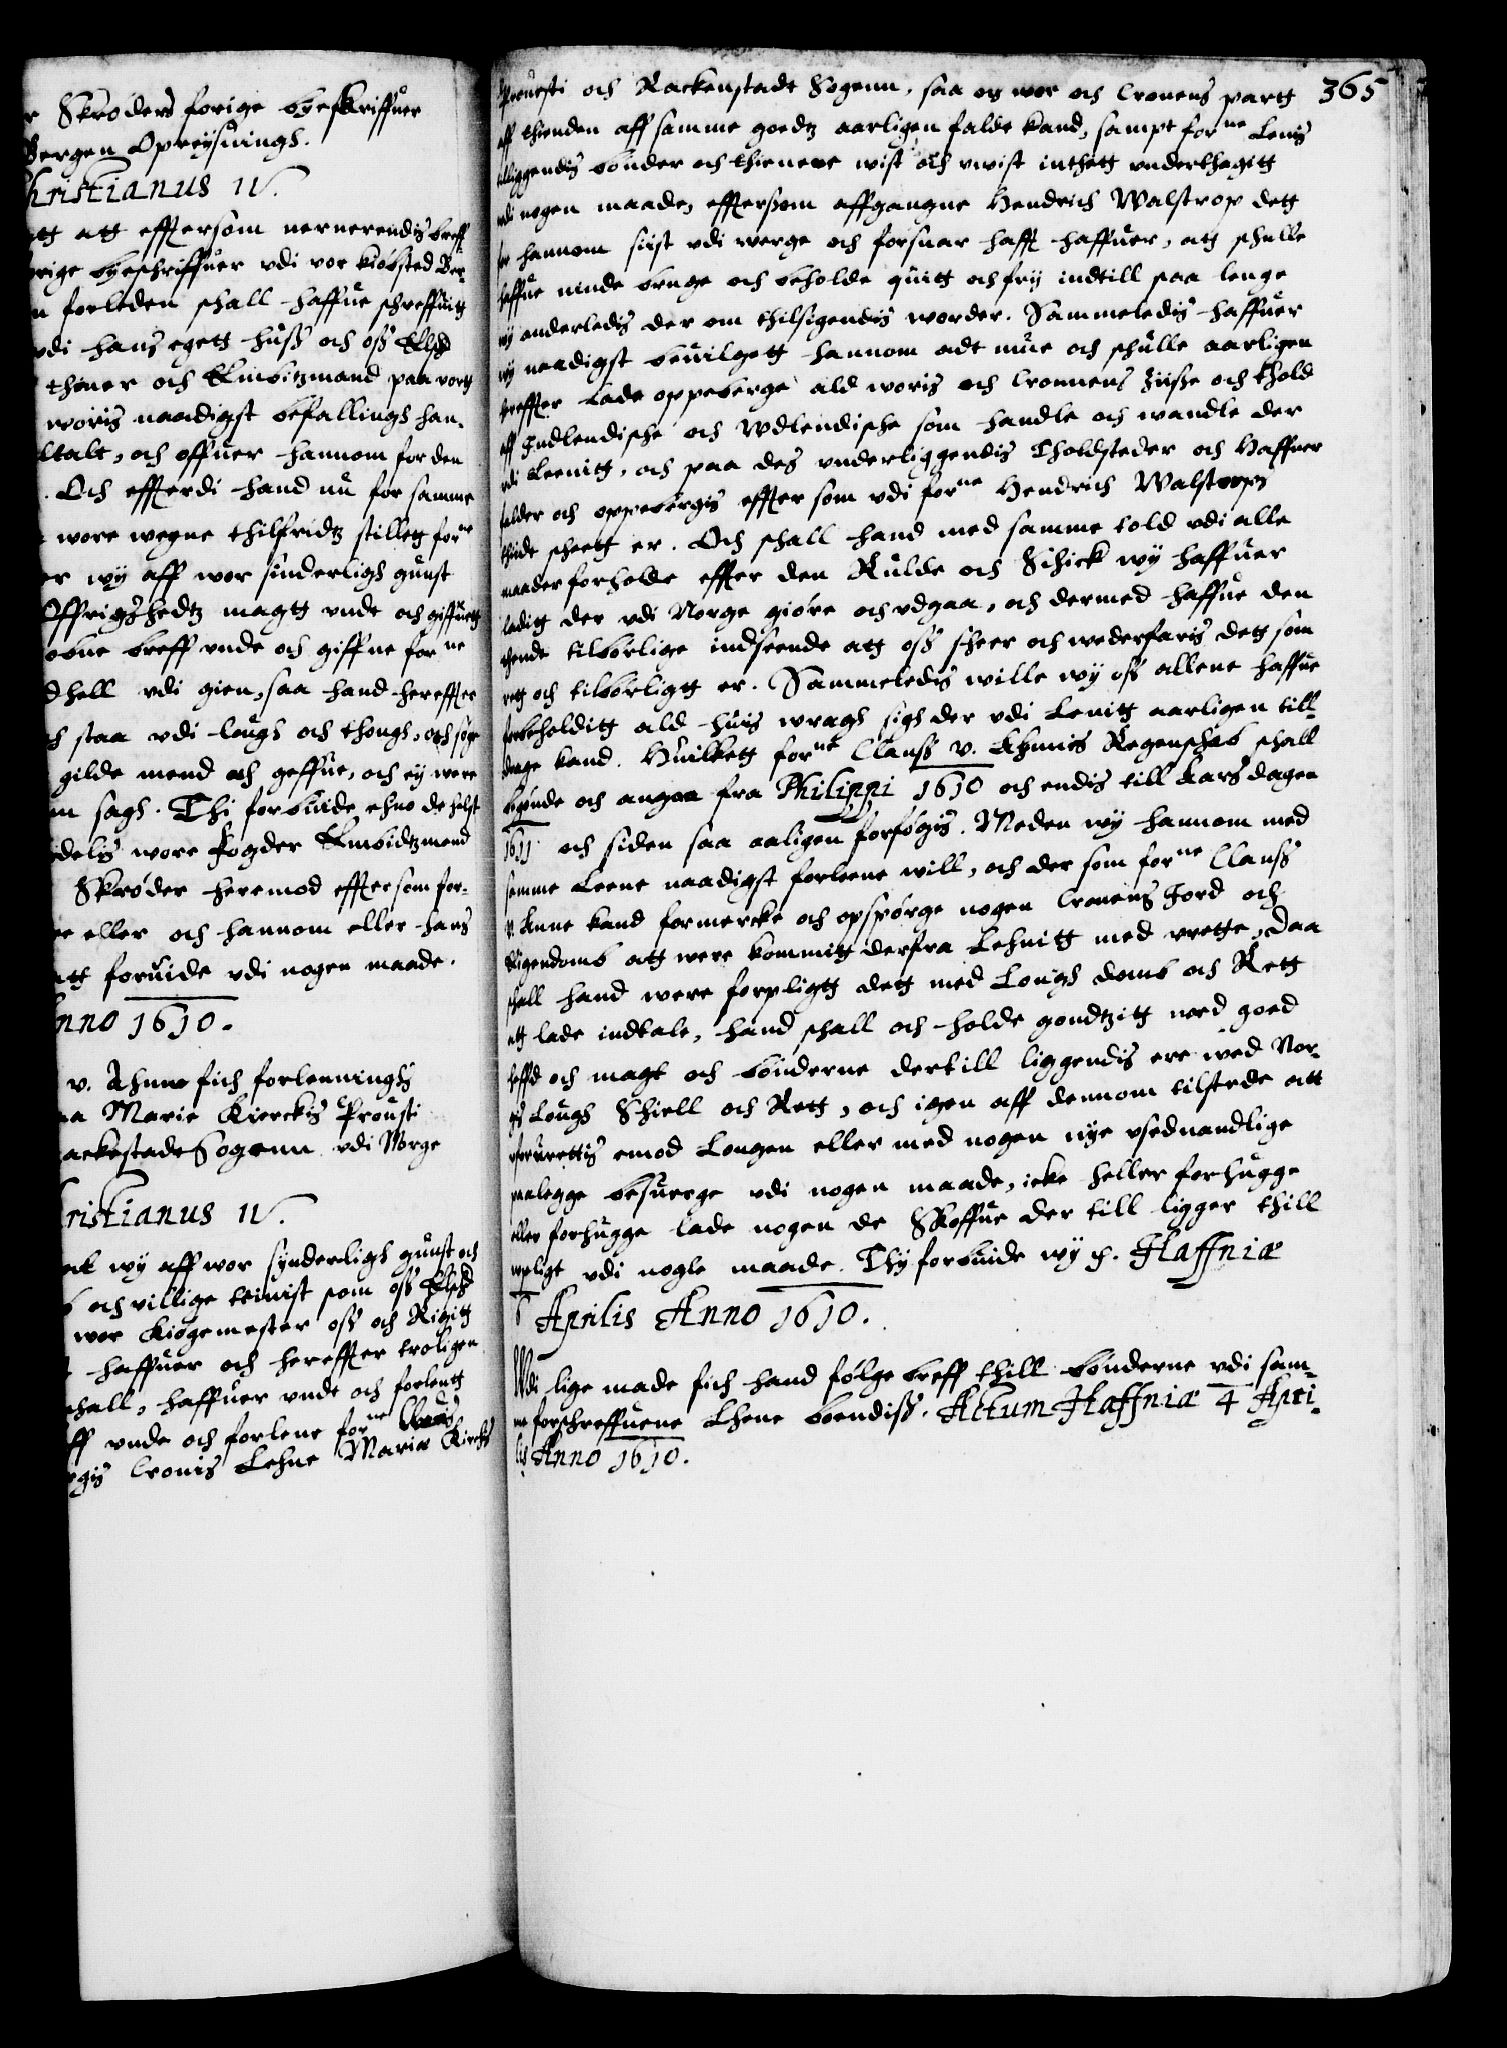 Skrøders forige byeskriffuer
Bergen Opreysnings.
hristianus IV.
att effttersom neruerendis breff-
rige byeschriffuer vdi vor kiøbsted Ber-
n forleden schall haffue schreffuitt
vdi hans egett huss och oss Elsk
thiener och Embitzmand paa vortt
woris naadigst befallings han-
ltalt, och offuer hannom for den
. Och effterdi hand nu for samme
wore wegne thilfridtz stillett forne
er wy aff wor sinderligh gunst
Offrighedtz magtt vnde och giffuett
obne breff vnde och giffue forne
dhell vdi gien, saa hand hereffter
ch staa vdi lough och thongh, och søge
gilde mend och geffue, och ey were
m sagh. Thi forbiude ehuo de helst
idelis wore fogder Embidtzmend
Skrøder heremod efftersom for-
re eller och hannom eller hans
att foruide vdi nogen maade.
nno 1610.
v. Ahnne fich forlenningh
aa Marie Kierckis Prousti
ackestade Sogenn vdi Norge
ristianus IV.
at wy aff wor synderligh gunst och
och villige tienist som oss Elsk
wor Kiøgemester oss och Rigitt
haffuer och hereffter troligen
schall, haffuer vndt och forlentt
ff vnde och forlene forne Claus
egis Cronis Lehne Mariæ Kirckis
365
Prouesti och Rackenstadt Sogenn, saa og wor och Cronens partt
aff thienden aff samme goedtz aarligen falde kand, sampt forne Lenis
tilliggendis bønder och thienere wist och vwist inthett vnderthagitt
vdi nogen maade, efftersom affgangne Hendrich Walstrop dett
for hannom siist vdi werge och forsuar hafft haffuer, att schulle
haffue niude bruge och beholde quitt och frij indtill saa lenge
wy anderledis der om thilsigendis worder. Sammeledis haffuer
wy naadigst beuilgett hannom adt mue och schulle aarligen
hereffter lade oppeberge ald woris och Cronnens ziisse och thold
aff Indlendische och Wdlendische som handle och wandle der
vdi Leenitt, och paa des vnderliggendis Tholdsteder och Haffner
falder och oppebørgis effter som vdi forne Hendrich Walstrops
thiide scheett er. Och schall hand med samme told vdi alle
maader forholde effter den Rulde och Schick wy haffuer
laditt der vdi Norge giøre och vdgaa, och dermed haffue den
thende tilbørlige indseende att oss scheer och wederfaris dett som
rett och tilbørligtt er. Sammeledis wille wy oss allene haffue
forbeholditt ald huis wragh sigh der vdi Lenitt aarligen till-
drage kand. Huilkett forne Clauss v. Ahnnis Regenschab schall
begynde och angaa fra Philippi 1610 och endis till aarsdagen
1611 och siden saa aaligen forføgis. Meden wy hannom med
samme Leene naadigst forleene will, och der som forne Clauss
v. Anne kand formercke och opspørge nogen Cronens Jord och
Eigendomb att were kommitt derfra Lehnitt med vrette, Daa
schall hand were forpligtt dett med Lough domb och Rett
att lade indtale, hand schall och holde gondtzitt wed goed
heffd och magt och bønderne dertill liggendis ere wed Nor-
gis Lough Schiell och Rett, och igen aff dennom tilstede att
vforrettis emod Lougen eller med nogen nye vsednandlige
paalegge besuerge vdi nogen maade, icke heller forhugge
eller forhugge lade nogen de Skoffue der till ligger thill
wpligt vdi nogle maade. Thy forbiude wy p. Haffniæ
6 Aprilis Anno 1610.
Wdi lige made fich hand følge breff thill bønderne vdi sam-
me forschreffuene Lhene boendiss. Actum Haffniæ 4 Apri-
lis Anno 1610.